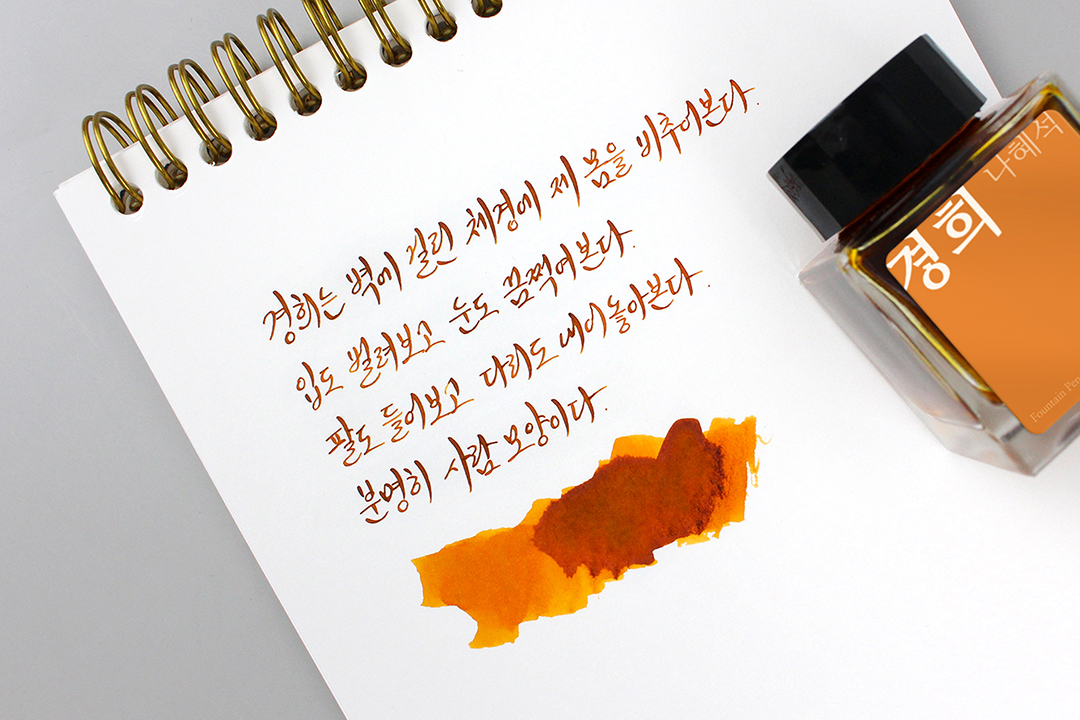 경희는 벽에 걸린 체경에 제 몸을 비추어본다.
입도 벌려보고 눈도 끔쩍여본다.
팔도 들어보고 다리도 내어놓아본다.
분명히 사람 모양이다.
나혜석
경희
Fountain Pen